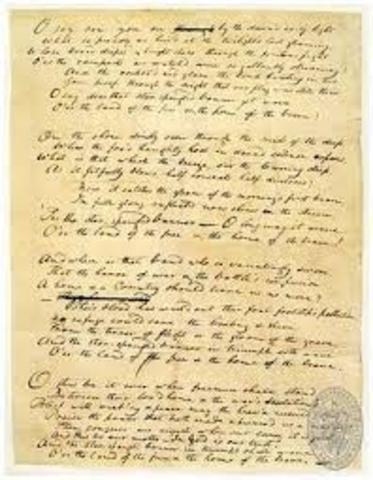 O say can you see by the dawn's early light
What so proudly we hail'd at the twilight's last gleaming,
Whose broad stripes & bright stars through the perilous fight
O'er the ramparts we watch'd, were so gallantly streaming?
And the rocket's red glare, the bomb bursting in air,
Gave proof through the night that our flag was still there
O say does that star spangled banner yet wave
O'er the land of the free & the home of the brave?
On the shore dimly seen through the mists of the deep,
Where the foe's haughty host in dread silence reposes,
What is that which the breeze, o'er the towering steep,
As it fitfully blows, half conceals, half discloses?
Now it catches the gleam of the morning's first beam,
In full glory reflected now shines in the stream,
'Tis the star-spangled banner — O long may it wave
O'er the land of the free & the home of the brave!
And where is that band who so vauntingly swore,
That the havoc of war & the battle's confusion
A home & a Country should leave us no more?
Their blood has wash'd out their foul footstep's pollution.
No refuge could save the hireling & slave
From the terror of flight or the gloom of the grave,
And the star-spangled banner in triumph doth wave
O'er the land of the free & the home of the brave.
O thus be it ever when freemen shall stand
Between their lov'd home & the war's desolation!
Praise the power that hath made & preserv'd us a nation!
And this be our motto — In God is our trust,
And the star-spangled banner in triumph shall wave
O'er the land of the free & the home of the brave. —